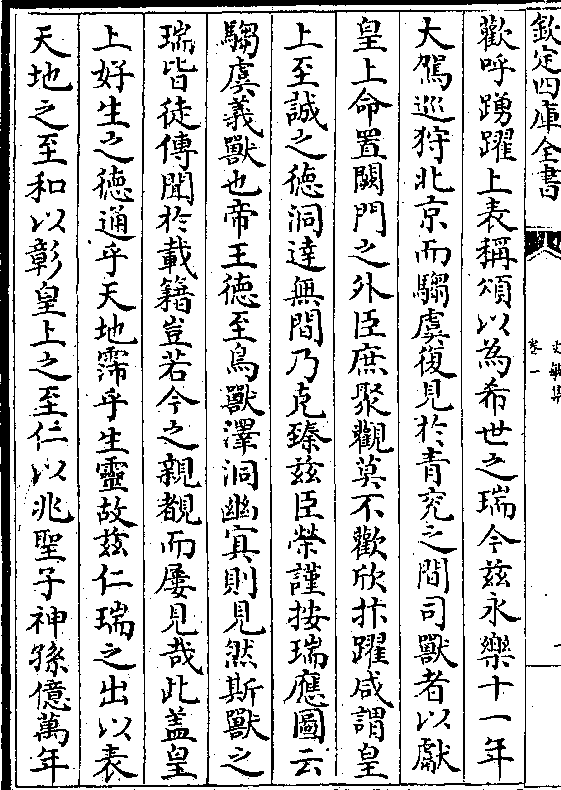 欽定四庫全書
文敏集
卷一
歡呼踴躍上表稱頌以為希世之瑞今兹永樂十一年
大駕巡狩北京而騶虞復見於青兖之間司獸者以獻
皇上命置闕門之外臣庶聚觀莫不歡欣抃躍咸謂皇
上至誠之徳洞達無間乃克臻兹臣榮謹按瑞應圖云
騶虞義獸也帝王德至鳥獸澤洞幽㝠則見然斯獸之
瑞皆徒傳聞於載籍豈若今之親覩而屢見哉此盖皇
上好生之徳通乎天地霈乎生靈故兹仁瑞之出以表
天地之至和以彰皇上之至仁以兆聖子神孫億萬年